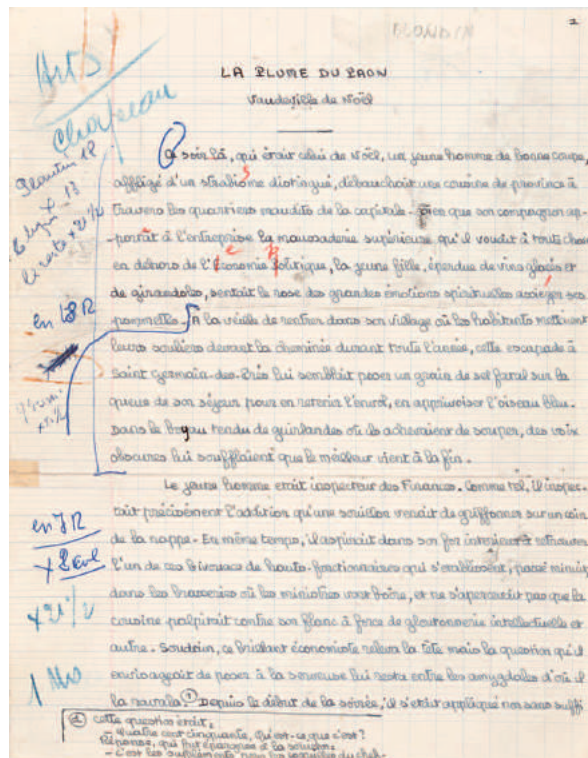 BLONDIN
2
Arts
Chapeau
LA PLUME DU PAON
Vaudeville de Noël
Ce soir là, qui était celui de Noël, un jeune homme de bonne coupe,
affligé d'un strabisme distingué, débauchait une cousine de province à
travers les quartiers maudits de la capitale. Bien que son compagnon ap-
-portât à l'entreprise la maussaderie supérieure qu'il vouait à toute chose
en dehors de l'économie politique, la jeune fille, éperdue de vins glacés et
de girandoles, sentait le rose des grandes émotions spirituelles assiéger ses
pommettes. A la veille de rentrer dans son village où les habitants mettaient
leurs souliers devant la cheminée durant toute l'année, cette escapade à
Saint Germain-des-Prés lui semblait poser un grain de sel fatal sur la
queue de son séjour pour en retenir l'envol, en apprivoiser l'oiseau bleu.
Dans le boyau tendu de guirlandes où ils achevaient de souper, des voix
obscures lui soufflaient que le meilleur vient à la fin.
Le jeune homme était inspecteur des Finances. Comme tel, il inspec-
tait précisément l'addition qu'une souillon venait de griffonner sur un coin
de la nappe. En même temps, il aspirait dans son for intérieur à retrouver
l'un de ces bivouacs de hauts-fonctionnaires qui s'établissent, passé minuit
dans les brasseries où les ministres vont boire, et ne s'apercevait pas que la
cousine palpitait contre son flanc à force de gloutonnerie intellectuelle et
autre. Soudain, ce brillant économiste releva la tête mais la question qu'il
envisageait de poser à la serveuse lui resta entre les amygdales d'où il
la ravala. (1) Depuis le début de la soirée, il s'était appliqué non sans suffi
(1) cette question était :
- Quatre cent cinquante, qu'est-ce que c'est ?
Réponse, qui fut épargnée à la souillon :
- C'est les suppléments
en 18 R
en 7 R
x 21 1/2